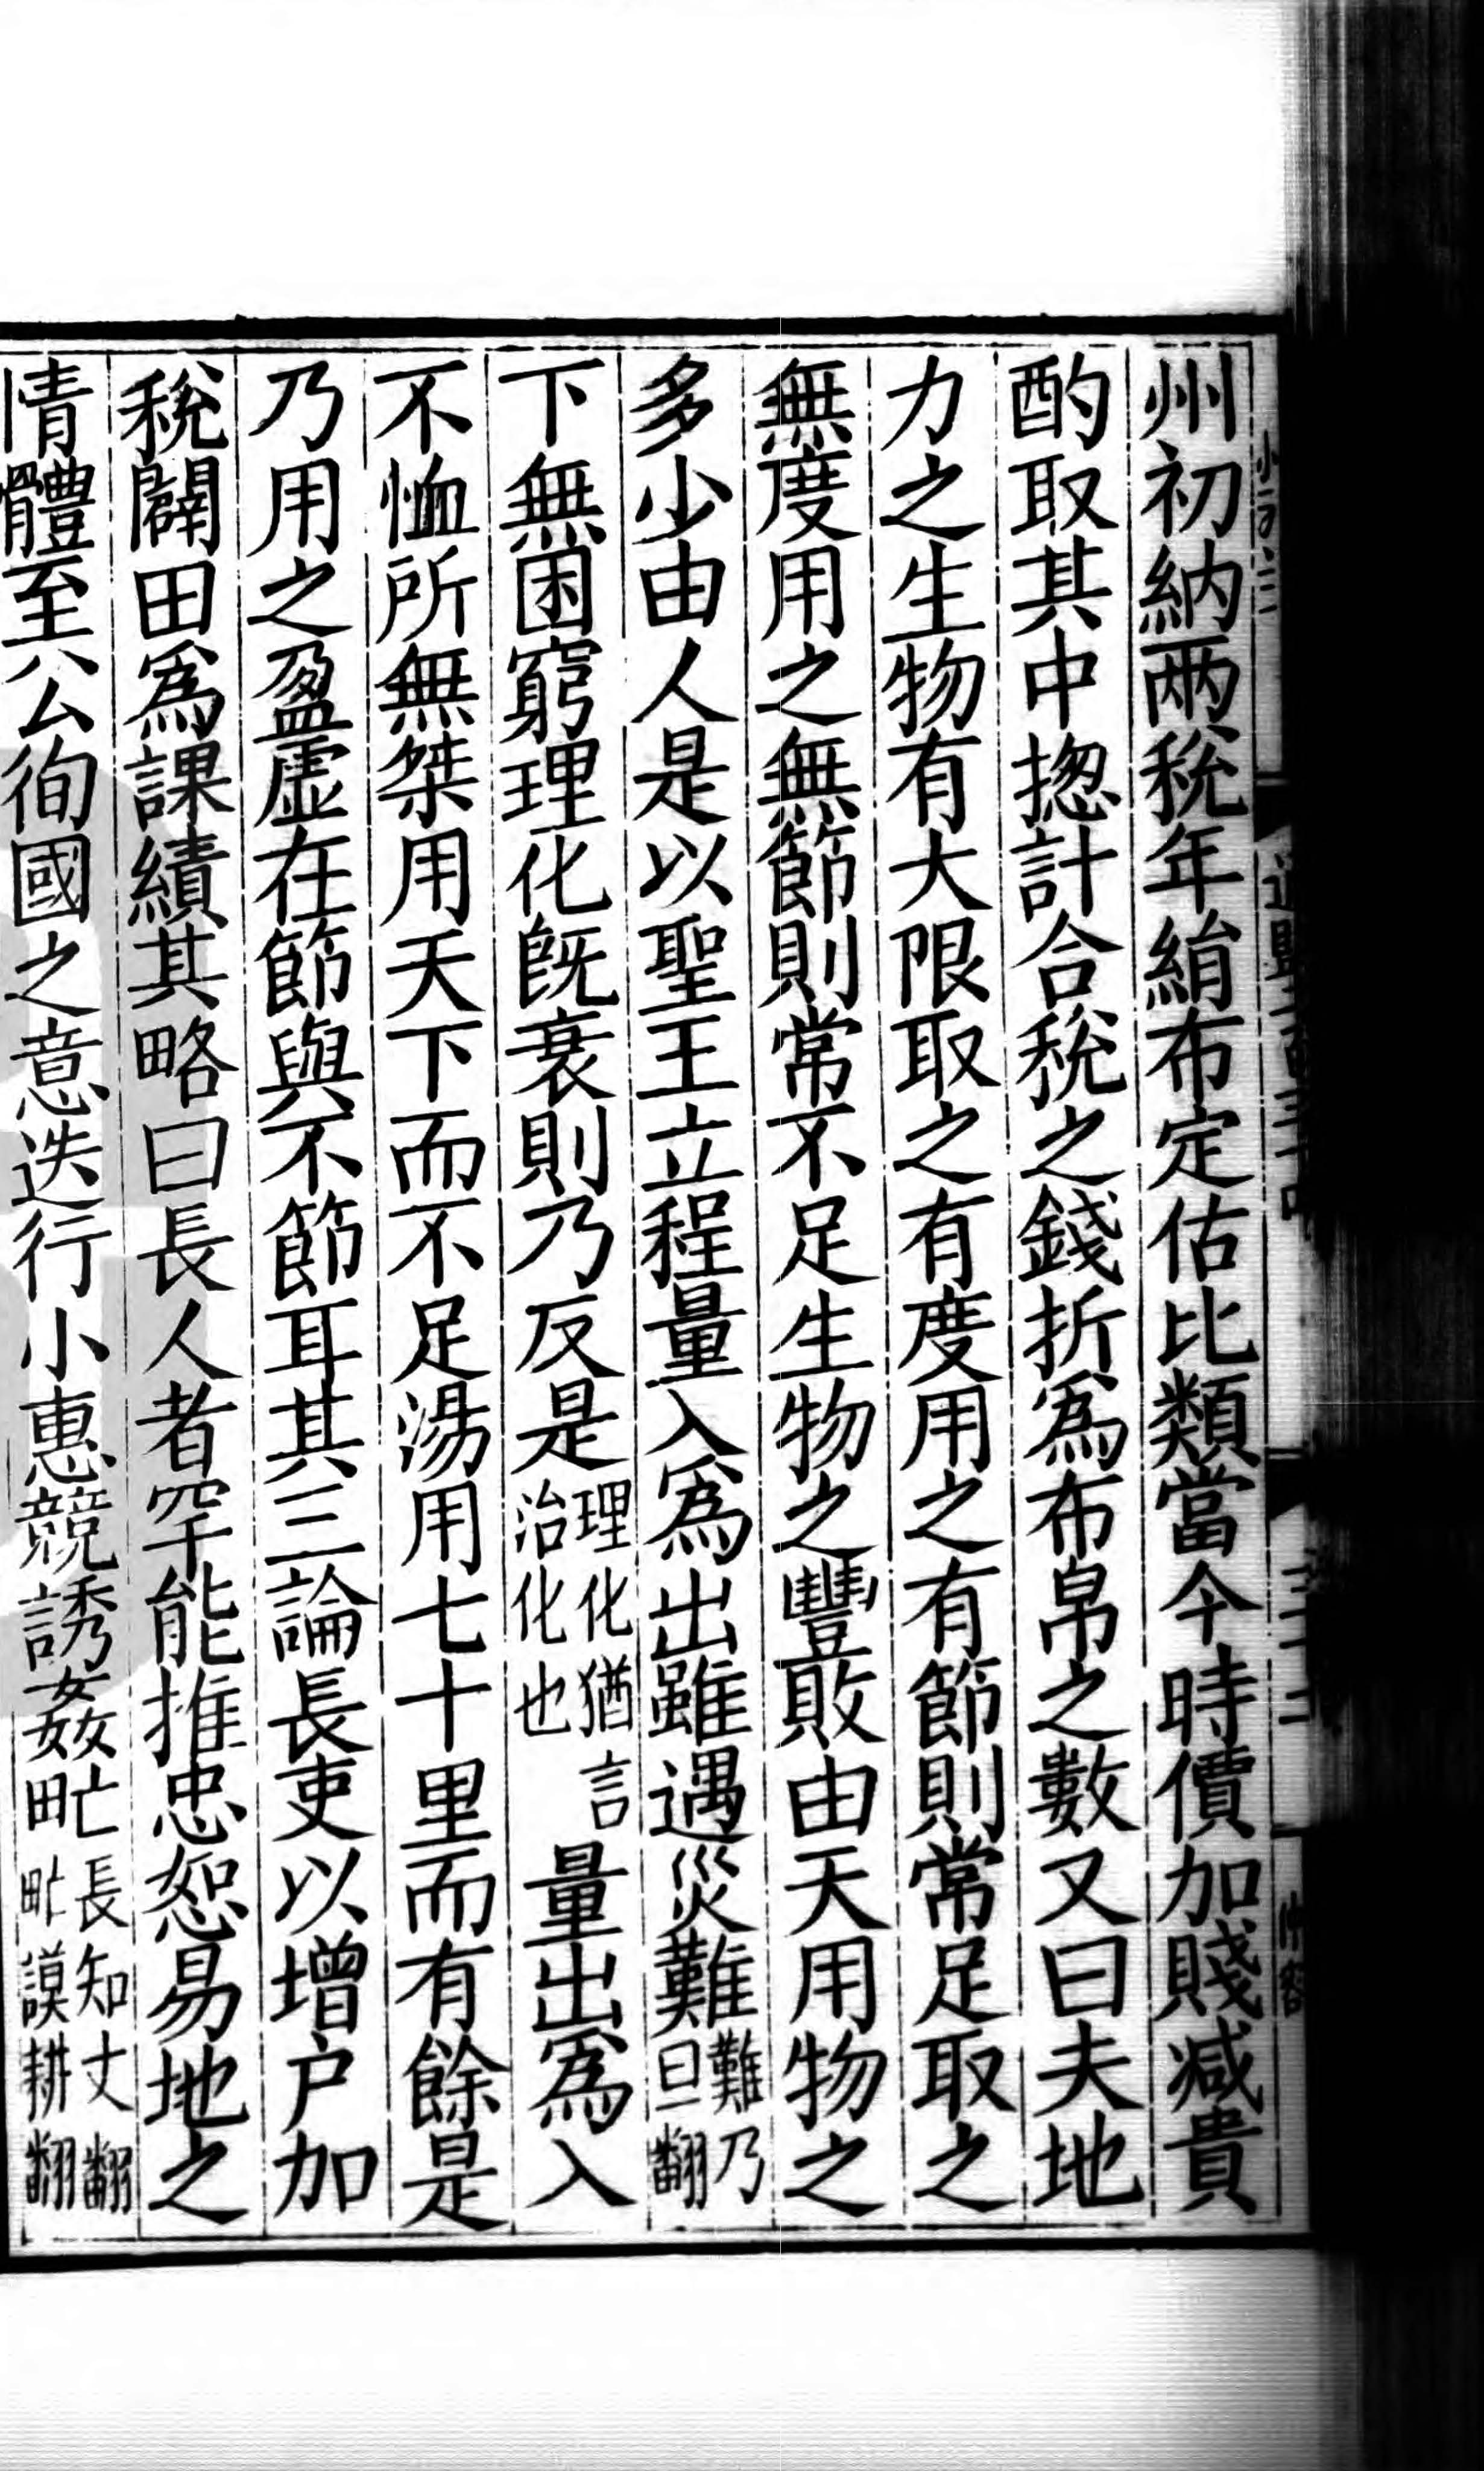 州初納兩稅年絹布定估比類當今時價加賤減貴
酌取其中揔計合稅之錢折爲布帛之數又曰夫地
力之生物有大限取之有度用之有節則常足取之
無度用之無節則常不足生物之豐敗由天用物之
多少由人是以聖王立程量入爲出雖遇災難難乃旦翻
下無困窮理化旣衰則乃反是理化猶言治化也量出爲入
不恤所無桀用天下而不足湯用七十里而有餘是
乃用之盈虛在節與不節耳其三論長吏以增户加
稅闢田爲課績其略曰長人者罕能推忠恕易地之
情體至公徇國之意迭行小惠競誘姦甿長知丈翻甿謨耕翻